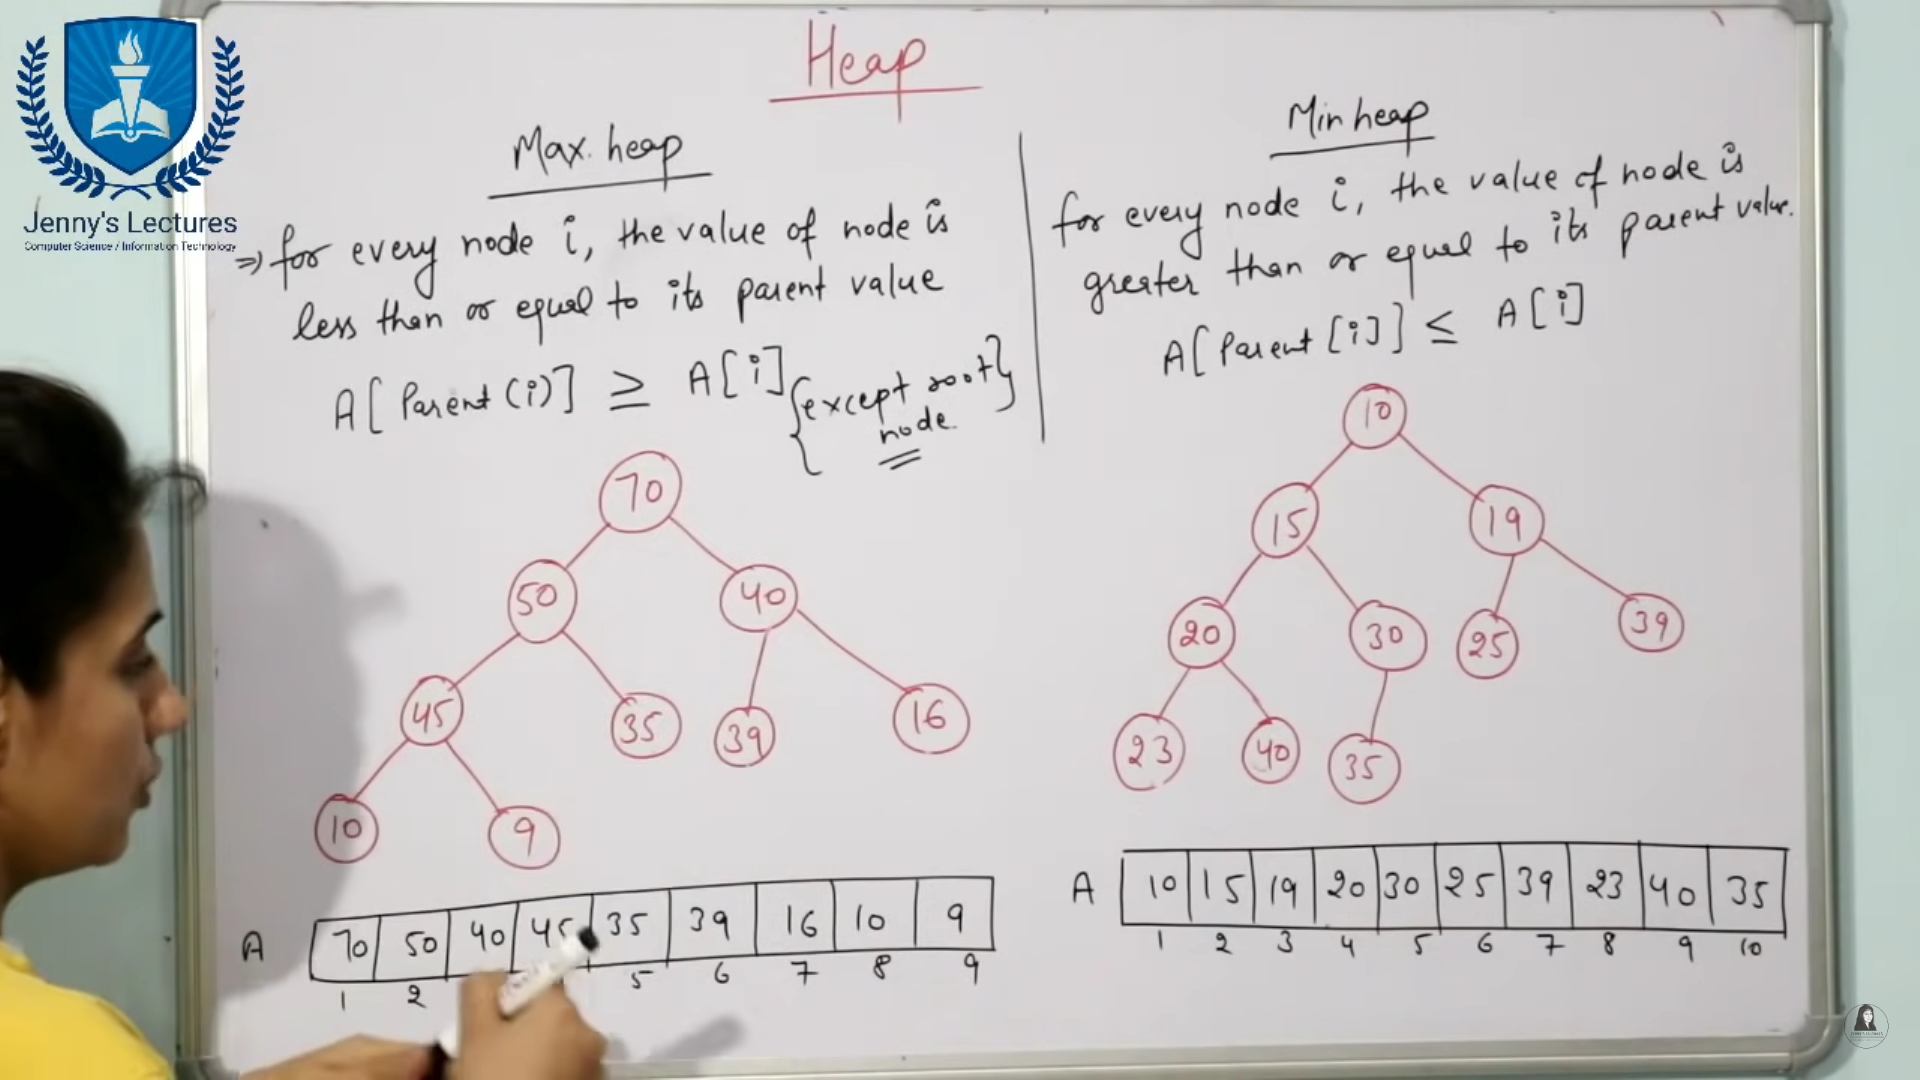 Jenny's Lectures
Computer Science / Information Technology
Heap
Max. heap
⇒ for every node i, the value of node is
less than or equal to its parent value
A[Parent(i)] ≥ A[i] {except root}
node
70
50 40
45 35 39 16
10 9
A 70 50 40 45 35 39 16 10 9
1 2 5 6 7 8 9
Min heap
for every node i, the value of node is
greater than or equal to its parent value.
A[Parent[i]] ≤ A[i]
10
15 19
20 30 25 39
23 40 35
A 10 15 19 20 30 25 39 23 40 35
1 2 3 4 5 6 7 8 9 10